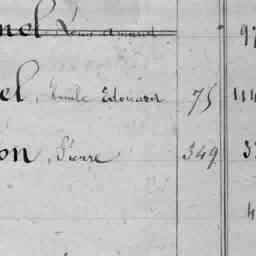 nel, Léon Armand 97
el, Emile Edouard 75 114
on, Pierre 349 3
4